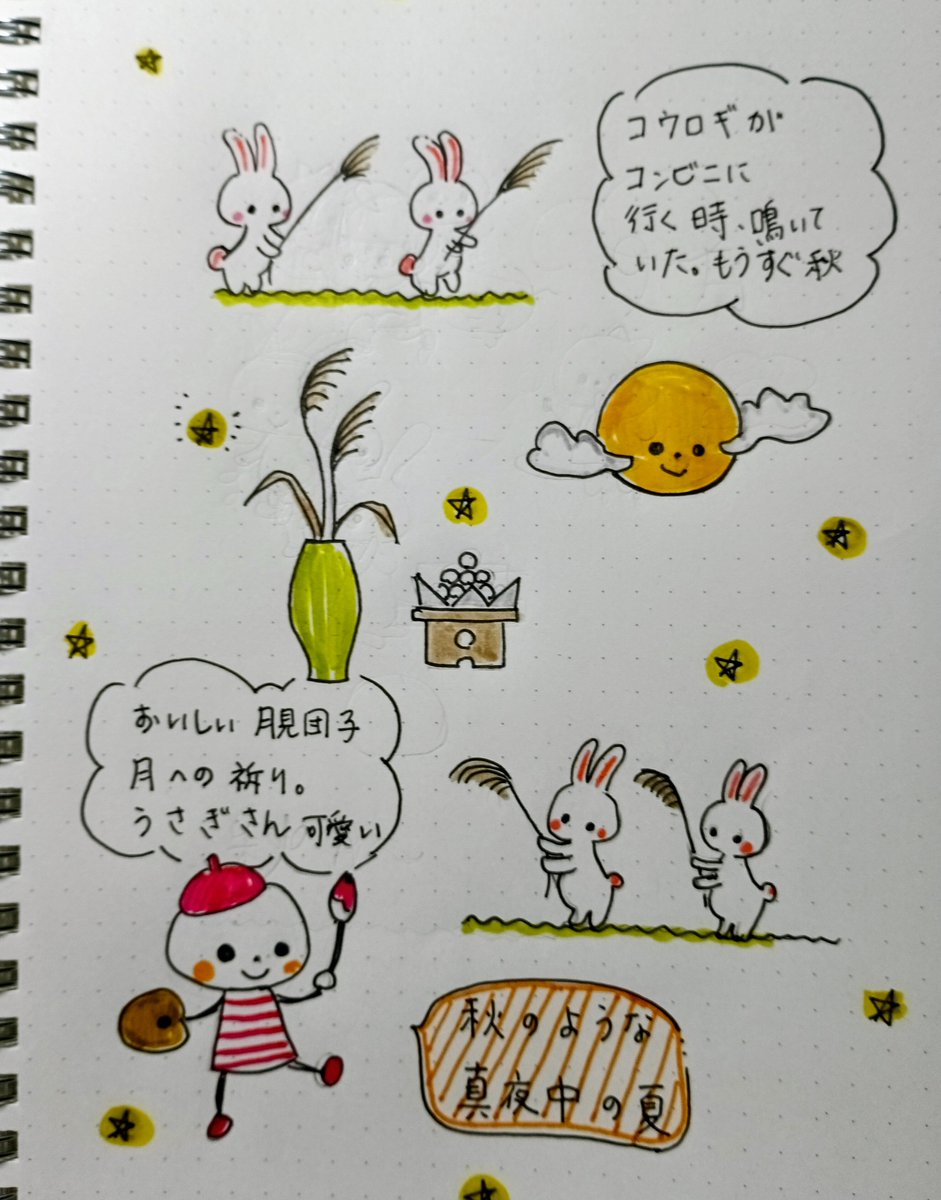 コウロギが
コンビニに
行く時、鳴いて
いた。もうすぐ秋
おいしい月見団子
月への祈り。
うさぎさん可愛い
秋のような
真夜中の夏